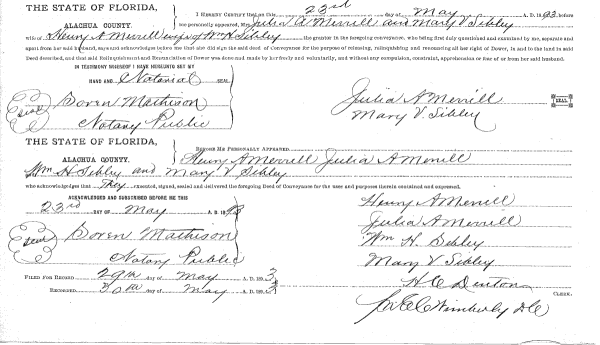 THE STATE OF FLORIDA,
ALACHUA COUNTY.
I HEREBY CERTIFY that on the 23rd day of May A. D. 1893 before
me personally appeared, Mrs Julia A Merrill and Mary V Sibley
wife of Henry A Merrill wife of Wm H Sibley the grantor in the foregoing conveyance, who being first duly questioned and examined by me, separate and
apart from her said husband, says and acknowledges before me that she did sign the said deed of Conveyance for the purpose of releasing, relinquishing and renouncing all her right of Dower, in and to the land in said
Deed described, and that said Relinquishment and Renunciation of Dower was done and made by her freely and voluntarily, and without any compulsion, constraint, apprehension or fear of or from her said husband.
IN TESTIMONY WHEREOF I HAVE HEREUNTO SET MY
HAND AND Notarial SEAL
Seal Soren Mathison
Notary Public
Julia A Merrill SEAL
Mary V. Sibley
THE STATE OF FLORIDA,
ALACHUA COUNTY.
BEFORE ME PERSONALLY APPEARED
Henry A Merrill Julia A Merrill
Wm H Sibley and Mary V Sibley
who acknowledges that They executed, signed, sealed and delivered the foregoing Deed of Conveyance for the uses and purposes therein contained and expressed.
ACKNOWLEDGED AND SUBSCRIBED BEFORE ME THIS
23rd DAY OF May A. D. 1893
Seal Soren Mathison
Notary Public
Henry A Merrill
Julia A Merrill
Wm H. Sibley
Mary V Sibley
FILED FOR RECORD 29th day of May A. D. 1893
RECORDED 30th day of May A. D. 1893
H C Denton CLERK.
Wimberly DC